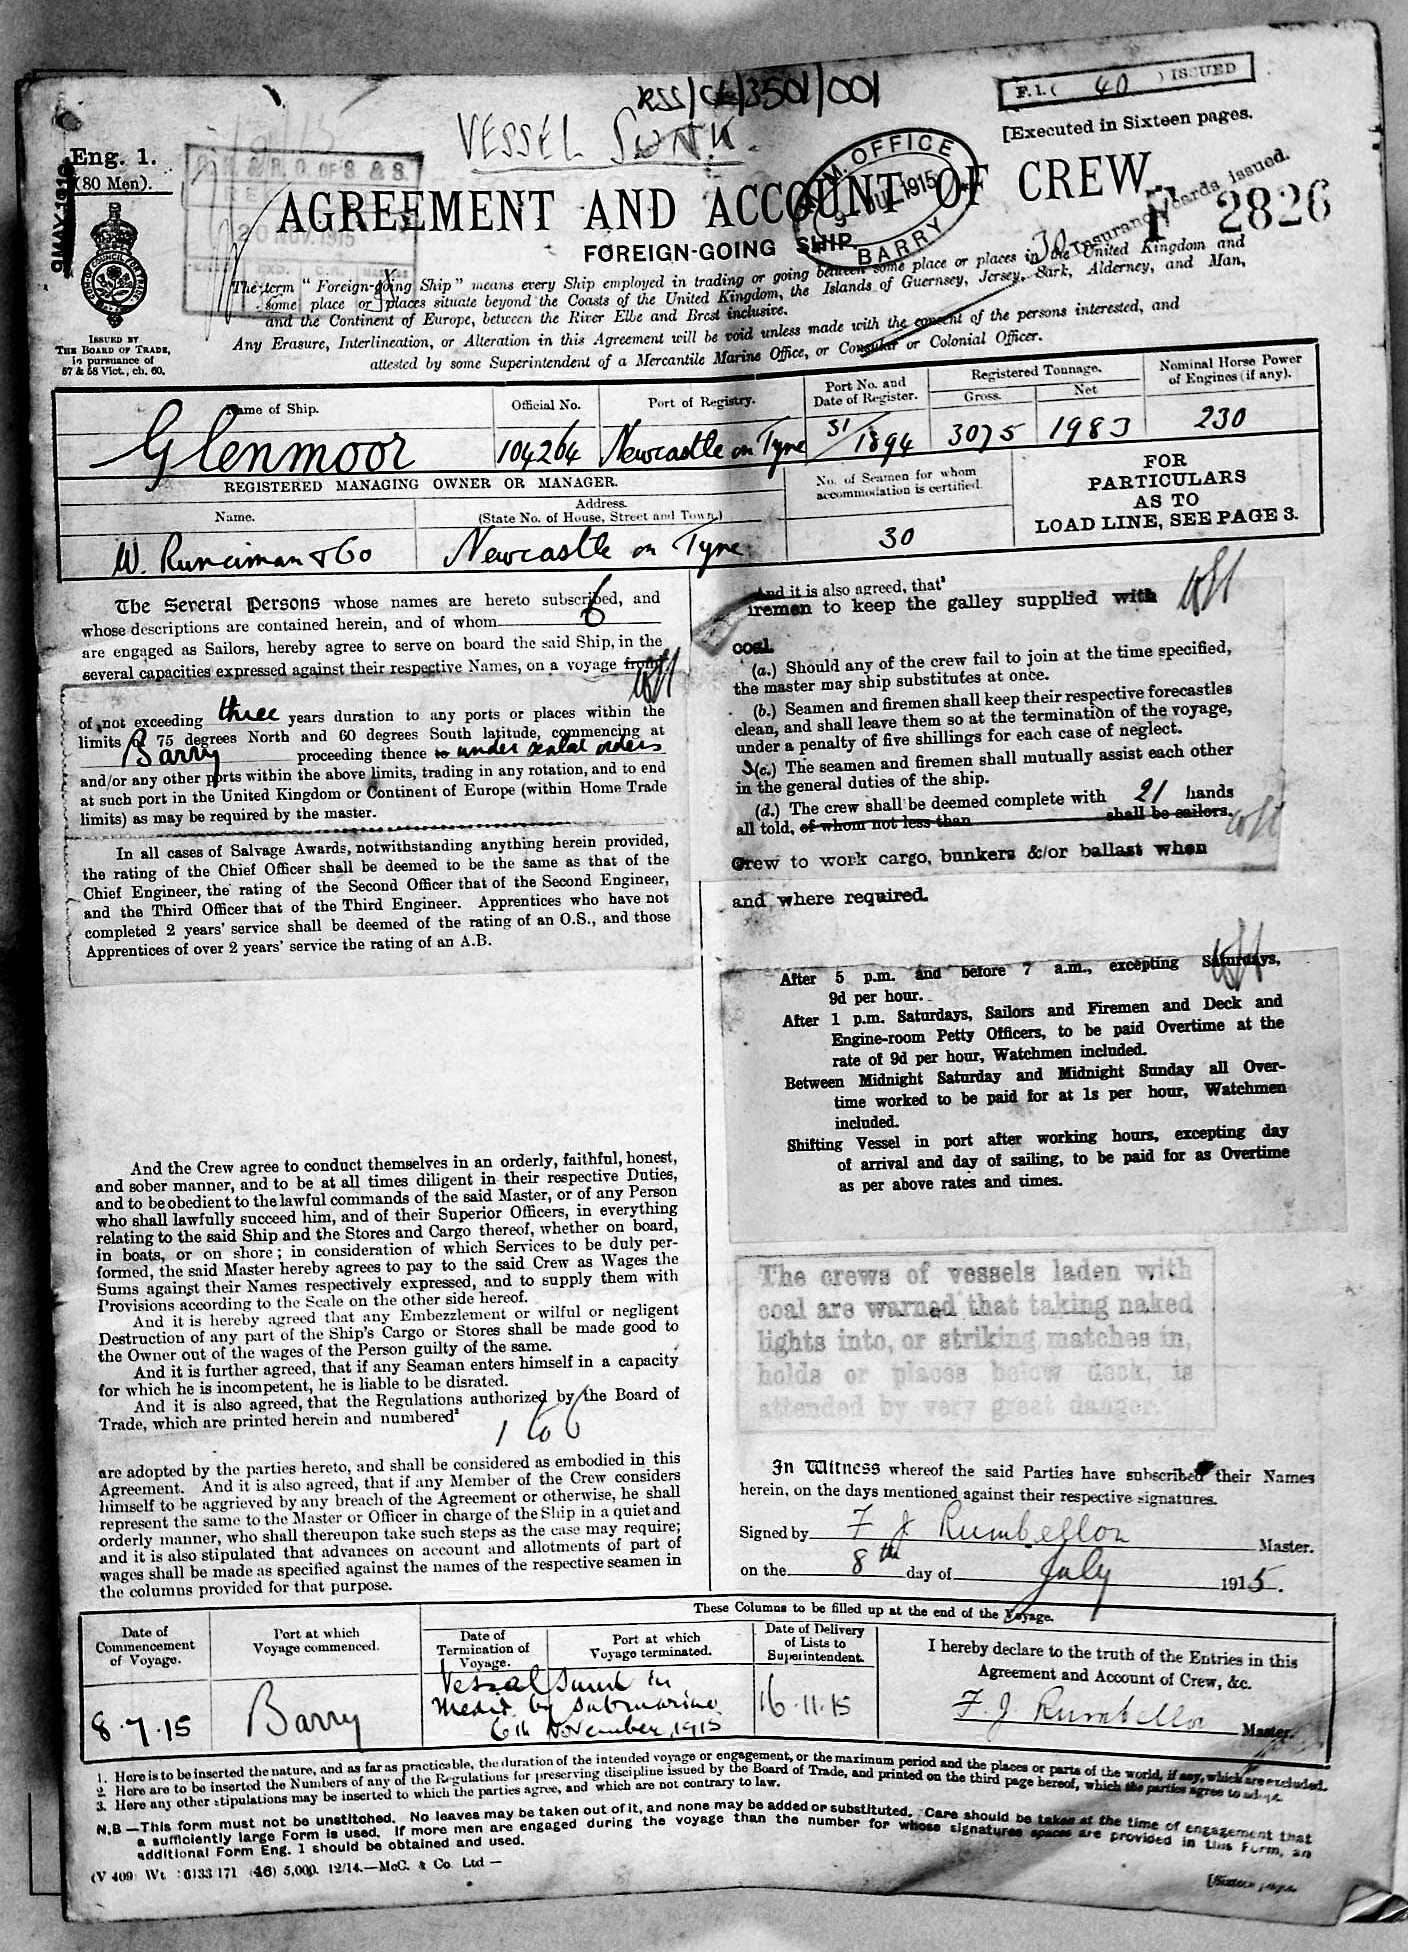 F.1. ( 40 ) ISSUED
RSS/CL/3501/001
[Executed in Sixteen pages.
VESSEL SUNK.
Eng. 1.
(80 Men).
9 MAY 1916
20 NOV. 1915
M.M. OFFICE
9 JUL 1915
BARRY
30 Insurance cards issued.
F 2826
AGREEMENT AND ACCOUNT OF CREW
FOREIGN-GOING SHIP.
ISSUED BY
THE BOARD OF TRADE,
in pursuance of
57 & 58 Vict., ch. 60.
The term "Foreign-going Ship" means every Ship employed in trading or going between some place or places in the United Kingdom and
some place or places situate beyond the Coasts of the United Kingdom, the Islands of Guernsey, Jersey, Sark, Alderney, and Man,
and the Continent of Europe, between the River Elbe and Brest inclusive.
Any Erasure, Interlineation, or Alteration in this Agreement will be void unless made with the consent of the persons interested, and
attested by some Superintendent of a Mercantile Marine Office, or Consular or Colonial Officer.
Name of Ship. Official No. Port of Registry. Port No. and Date of Register. Registered Tonnage. Gross. Net Nominal Horse Power of Engines (if any).
Glenmoor 104264 Newcastle on Tyne 31/1894 3075 1983 230
REGISTERED MANAGING OWNER OR MANAGER.
No. of Seamen for whom accommodation is certified.
FOR
PARTICULARS
AS TO
LOAD LINE, SEE PAGE 3.
Name. Address.
(State No. of House, Street and Town.)
W. Runciman & Co Newcastle on Tyne 30
The Several Persons whose names are hereto subscribed, and
whose descriptions are contained herein, and of whom 6
are engaged as Sailors, hereby agree to serve on board the said Ship, in the
several capacities expressed against their respective Names, on a voyage from
of not exceeding three years duration to any ports or places within the
limits of 75 degrees North and 60 degrees South latitude, commencing at
Barry proceeding thence to under sealed orders
and/or any other ports within the above limits, trading in any rotation, and to end
at such port in the United Kingdom or Continent of Europe (within Home Trade
limits) as may be required by the master.
In all cases of Salvage Awards, notwithstanding anything herein provided,
the rating of the Chief Officer shall be deemed to be the same as that of the
Chief Engineer, the rating of the Second Officer that of the Second Engineer,
and the Third Officer that of the Third Engineer. Apprentices who have not
completed 2 years' service shall be deemed of the rating of an O.S., and those
Apprentices of over 2 years' service the rating of an A.B.
And the Crew agree to conduct themselves in an orderly, faithful, honest,
and sober manner, and to be at all times diligent in their respective Duties,
and to be obedient to the lawful commands of the said Master, or of any Person
who shall lawfully succeed him, and of their Superior Officers, in everything
relating to the said Ship and the Stores and Cargo thereof, whether on board,
in boats, or on shore; in consideration of which Services to be duly per-
formed, the said Master hereby agrees to pay to the said Crew as Wages the
Sums against their Names respectively expressed, and to supply them with
Provisions according to the Scale on the other side hereof.
And it is hereby agreed that any Embezzlement or wilful or negligent
Destruction of any part of the Ship's Cargo or Stores shall be made good to
the Owner out of the wages of the Person guilty of the same.
And it is further agreed, that if any Seaman enters himself in a capacity
for which he is incompetent, he is liable to be disrated.
And it is also agreed, that the Regulations authorized by the Board of
Trade, which are printed herein and numbered²
1 to 6
are adopted by the parties hereto, and shall be considered as embodied in this
Agreement. And it is also agreed, that if any Member of the Crew considers
himself to be aggrieved by any breach of the Agreement or otherwise, he shall
represent the same to the Master or Officer in charge of the Ship in a quiet and
orderly manner, who shall thereupon take such steps as the case may require;
and it is also stipulated that advances on account and allotments of part of
wages shall be made as specified against the names of the respective seamen in
the columns provided for that purpose.
And it is also agreed, that³
iremen to keep the galley supplied with
coal.
(a.) Should any of the crew fail to join at the time specified,
the master may ship substitutes at once.
(b.) Seamen and firemen shall keep their respective forecastles
clean, and shall leave them so at the termination of the voyage,
under a penalty of five shillings for each case of neglect.
(c.) The seamen and firemen shall mutually assist each other
in the general duties of the ship.
(d.) The crew shall be deemed complete with 21 hands
all told, of whom not less than shall be sailors.
Crew to work cargo, bunkers &/or ballast when
and where required.
After 5 p.m. and before 7 a.m., excepting Saturdays,
9d per hour.
After 1 p.m. Saturdays, Sailors and Firemen and Deck and
Engine-room Petty Officers, to be paid Overtime at the
rate of 9d per hour, Watchmen included.
Between Midnight Saturday and Midnight Sunday all Over-
time worked to be paid for at 1s per hour, Watchmen
included.
Shifting Vessel in port after working hours, excepting day
of arrival and day of sailing, to be paid for as Overtime
as per above rates and times.
The crews of vessels laden with
coal are warned that taking naked
lights into, or striking matches in,
holds or places below deck, is
attended by very great danger.
In Witness whereof the said Parties have subscribed their Names
herein, on the days mentioned against their respective signatures.
Signed by F J Rumbellow Master.
on the 8th day of July 1915.
These Columns to be filled up at the end of the Voyage.
Date of Commencement of Voyage. Port at which Voyage commenced. Date of Termination of Voyage. Port at which Voyage terminated. Date of Delivery of Lists to Superintendent.
I hereby declare to the truth of the Entries in this
Agreement and Account of Crew, &c.
8.7.15 Barry Vessel Sunk in
Medit by submarine
6th November, 1915
16.11.15
F. J Rumbellow Master.
1. Here is to be inserted the nature, and as far as practicable, the duration of the intended voyage or engagement, or the maximum period and the places or parts of the world, if any, which are excluded.
2. Here are to be inserted the Numbers of any of the Regulations for preserving discipline issued by the Board of Trade, and printed on the third page hereof, which the parties agree to adopt.
3. Here any other stipulations may be inserted to which the parties agree, and which are not contrary to law.
N.B—This form must not be unstitched. No leaves may be taken out of it, and none may be added or substituted. Care should be taken at the time of engagement that
a sufficiently large Form is used. If more men are engaged during the voyage than the number for whose signatures spaces are provided in this Form, an
additional Form Eng. 1 should be obtained and used.
(V 409) Wt. 6133/171 (46) 5,000. 12/14.—McC. & Co. Ltd—
[Sixteen pages.